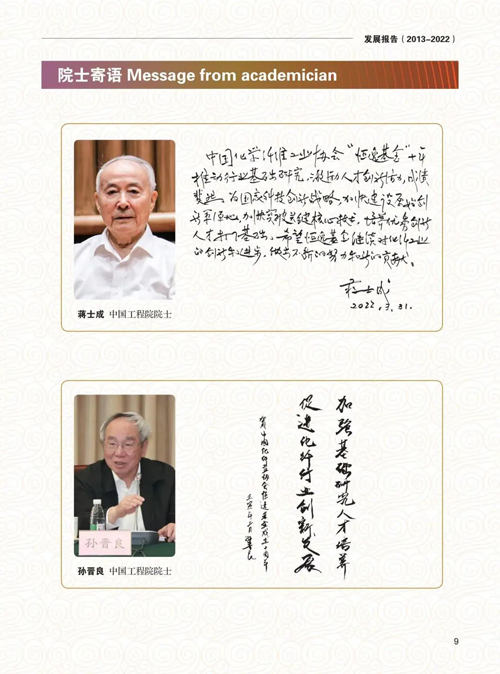 发展报告（2013-2022）
院士寄语 Message from academician
中国化学纤维工业协会“恒逸基金”十年
推动行业基础研究，激励人才创新活力，成绩
斐然。为国家科技创新战略，加快建设原始创
新策源地，加快突破关键核心技术，培养优秀创新
人才打下基础。希望恒逸基金继续对化纤工业
的创新和进步，做出不断的努力和新的贡献。
蒋士成
2022.3.31.
蒋士成 中国工程院院士
加强基础研究人才培养
促进化纤行业创新发展
贺中国化纤协会恒逸基金成立十周年
孙晋良
孙晋良 中国工程院院士
9